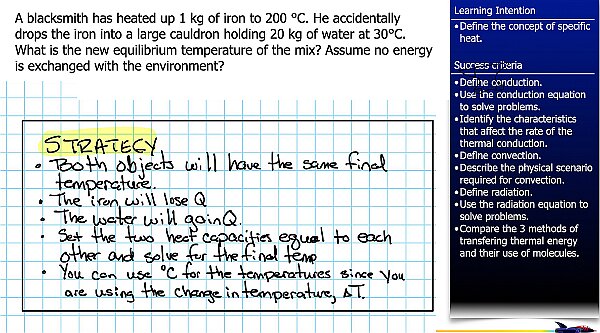 A blacksmith has heated up 1 kg of iron to 200 °C. He accidentally
drops the iron into a large cauldron holding 20 kg of water at 30°C.
What is the new equilibrium temperature of the mix? Assume no energy
is exchanged with the environment?
STRATEGY
• Both objects will have the same final
temperature.
• The iron will lose Q
• The water will gain Q.
• Set the two heat capacities equal to each
other and solve for the final temp
• You can use °C for the temperatures since you
are using the change in temperature, ΔT.
Learning Intention
•Define the concept of specific
heat.
Success criteria
•Define conduction.
•Use the conduction equation
to solve problems.
•Identify the characteristics
that affect the rate of the
thermal conduction.
•Define convection.
•Describe the physical scenario
required for convection.
•Define radiation.
•Use the radiation equation to
solve problems.
•Compare the 3 methods of
transfering thermal energy
and their use of molecules.